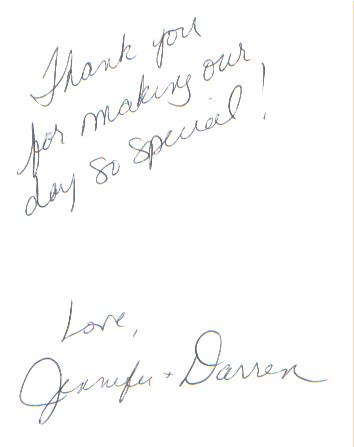 Thank you
for making our
day so special!
Love,
Jennifer + Darren